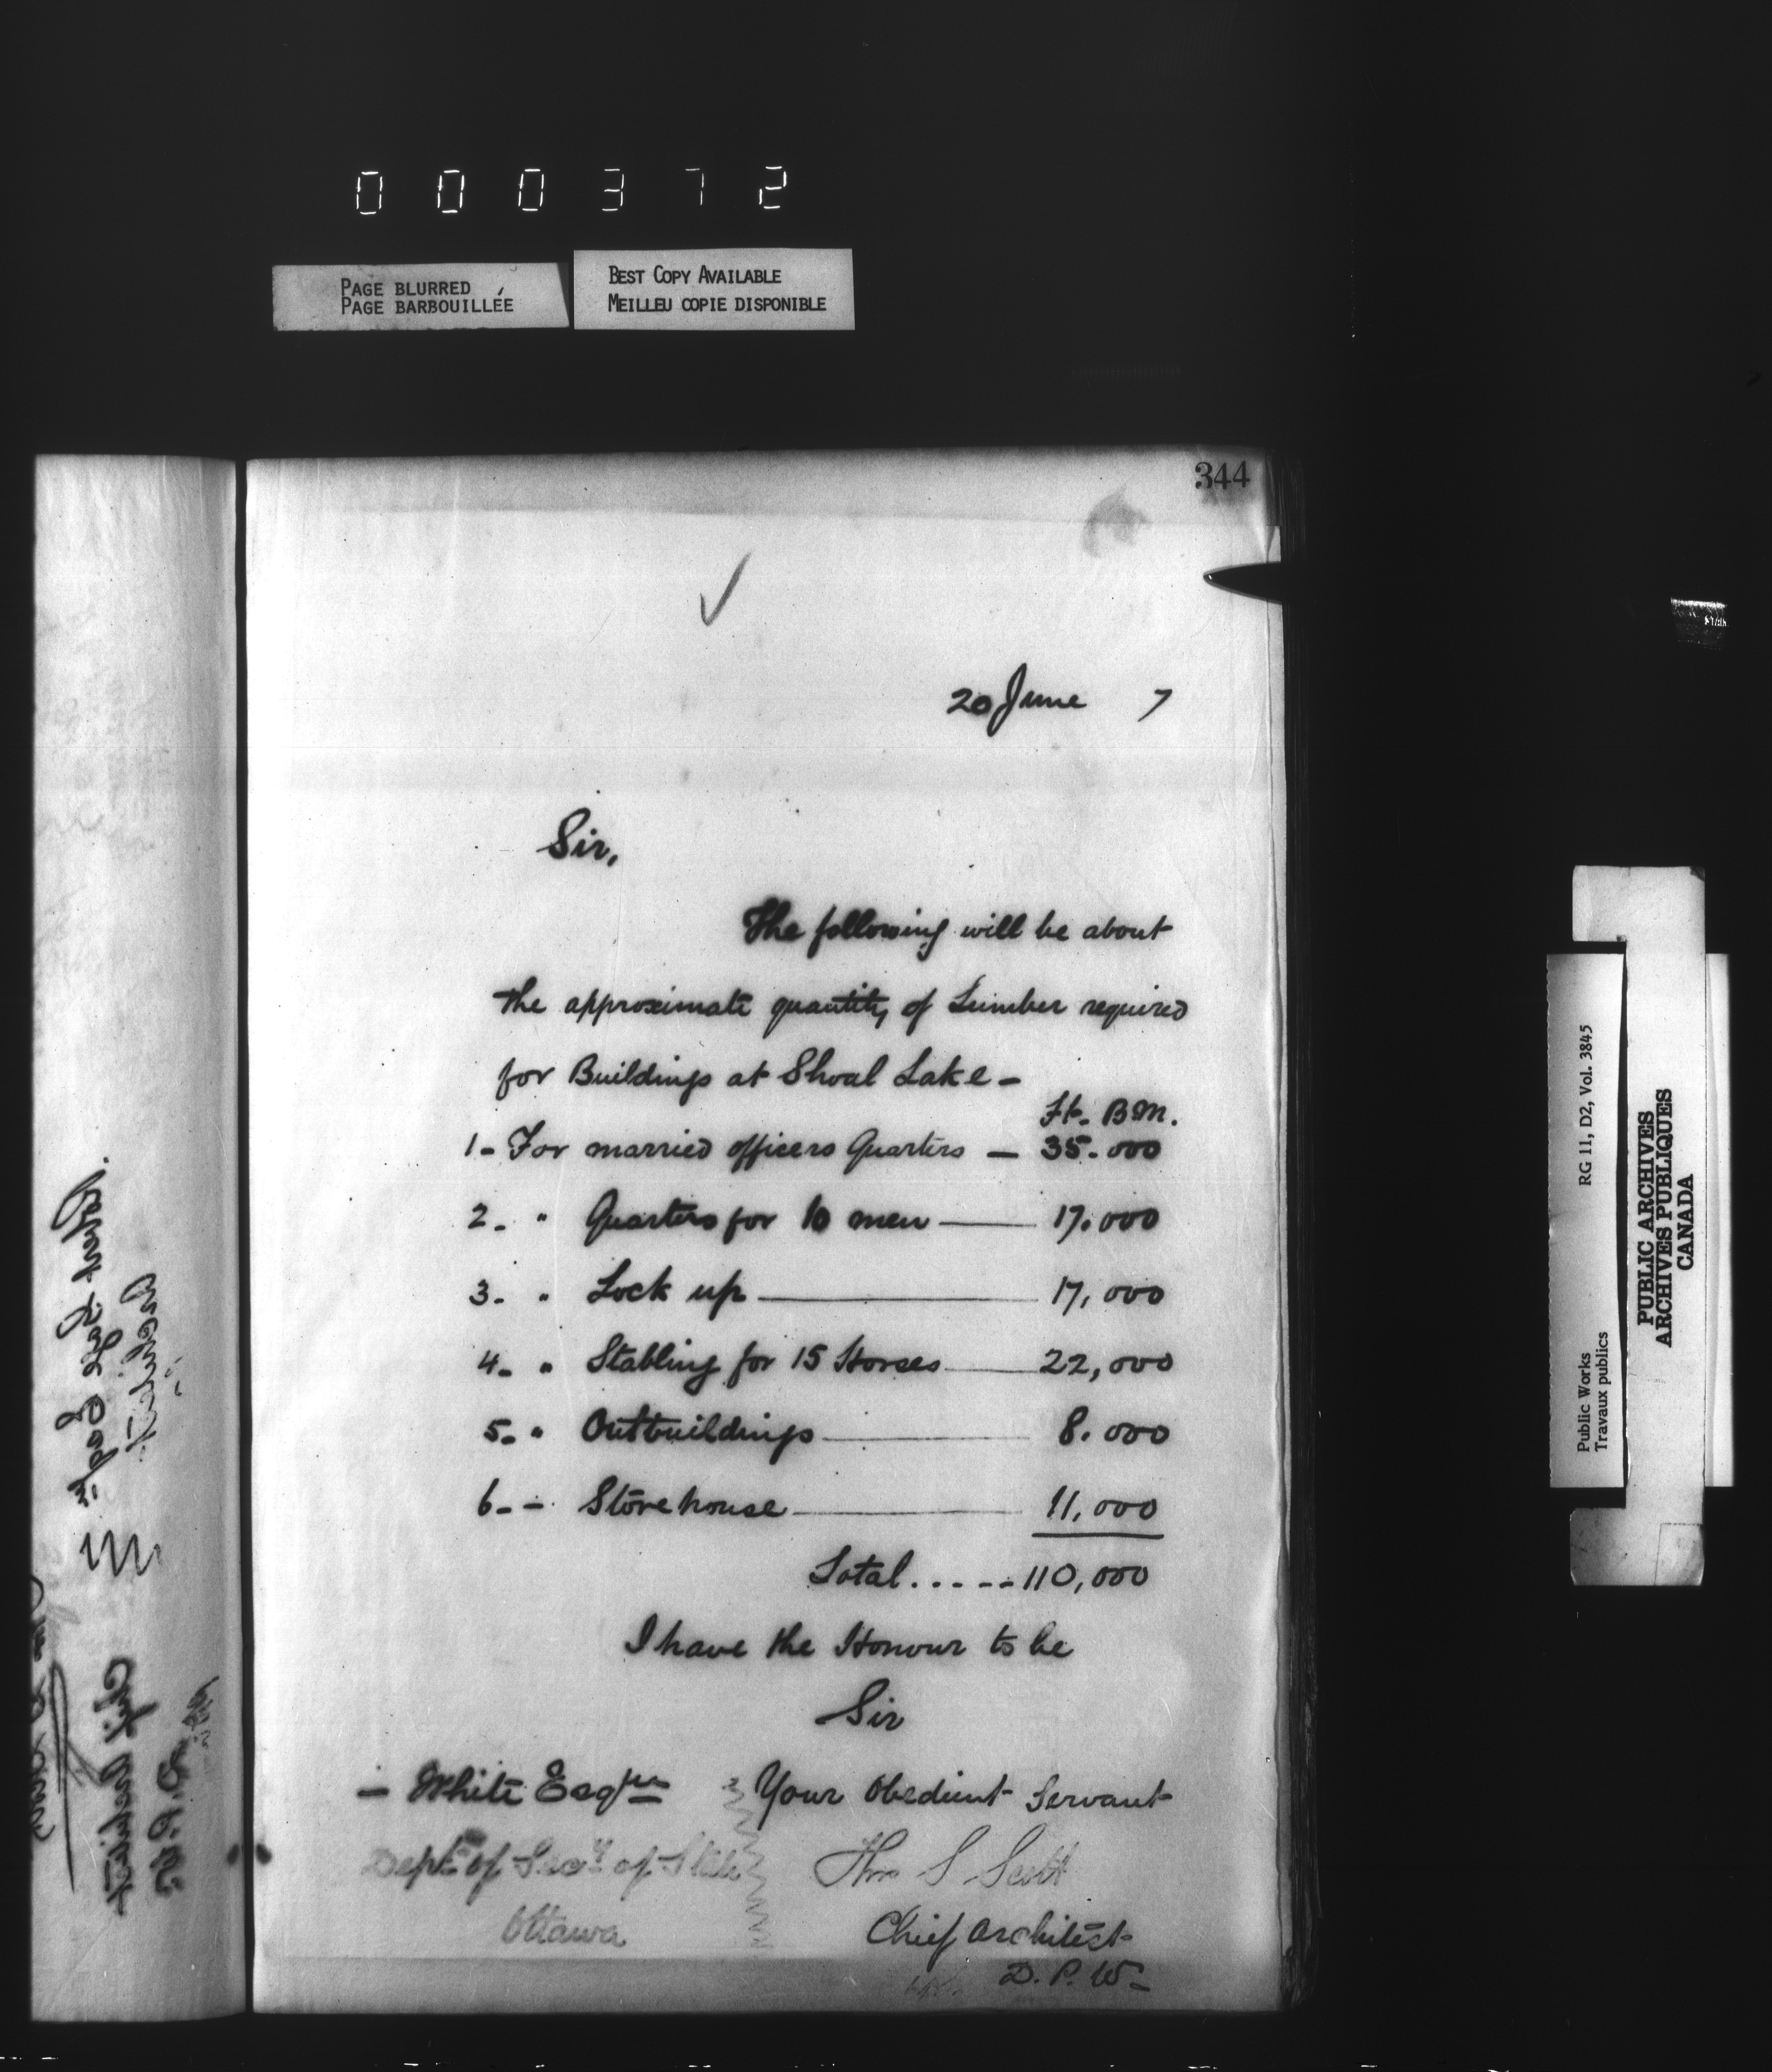 000372
PAGE BLURRED
PAGE BARBOUILLÉE
BEST COPY AVAILABLE
MEILLEU COPIE DISPONIBLE
344
20 June 7
Sir,
The following will be about
the approximate quantity of Lumber required
for Buildings at Shoal Lake -
Ft. BM.
1 - For married officers Quarters — 35.000
2 - " Quarters for 10 men — 17.000
3 - " Lock up — 17,000
4 - " Stabling for 15 Horses — 22,000
5 - " Outbuildings — 8.000
6 - - Storehouse — 11,000
Total ..... 110,000
I have the Honour to be
Sir
— White Esqre
Dept. of Secy of State
Ottawa
Your Obedient Servant
Thos S Scott
Chief Architect
D. P. W -
RG 11, D2, Vol. 3845
Public Works
Travaux publics
PUBLIC ARCHIVES
ARCHIVES PUBLIQUES
CANADA